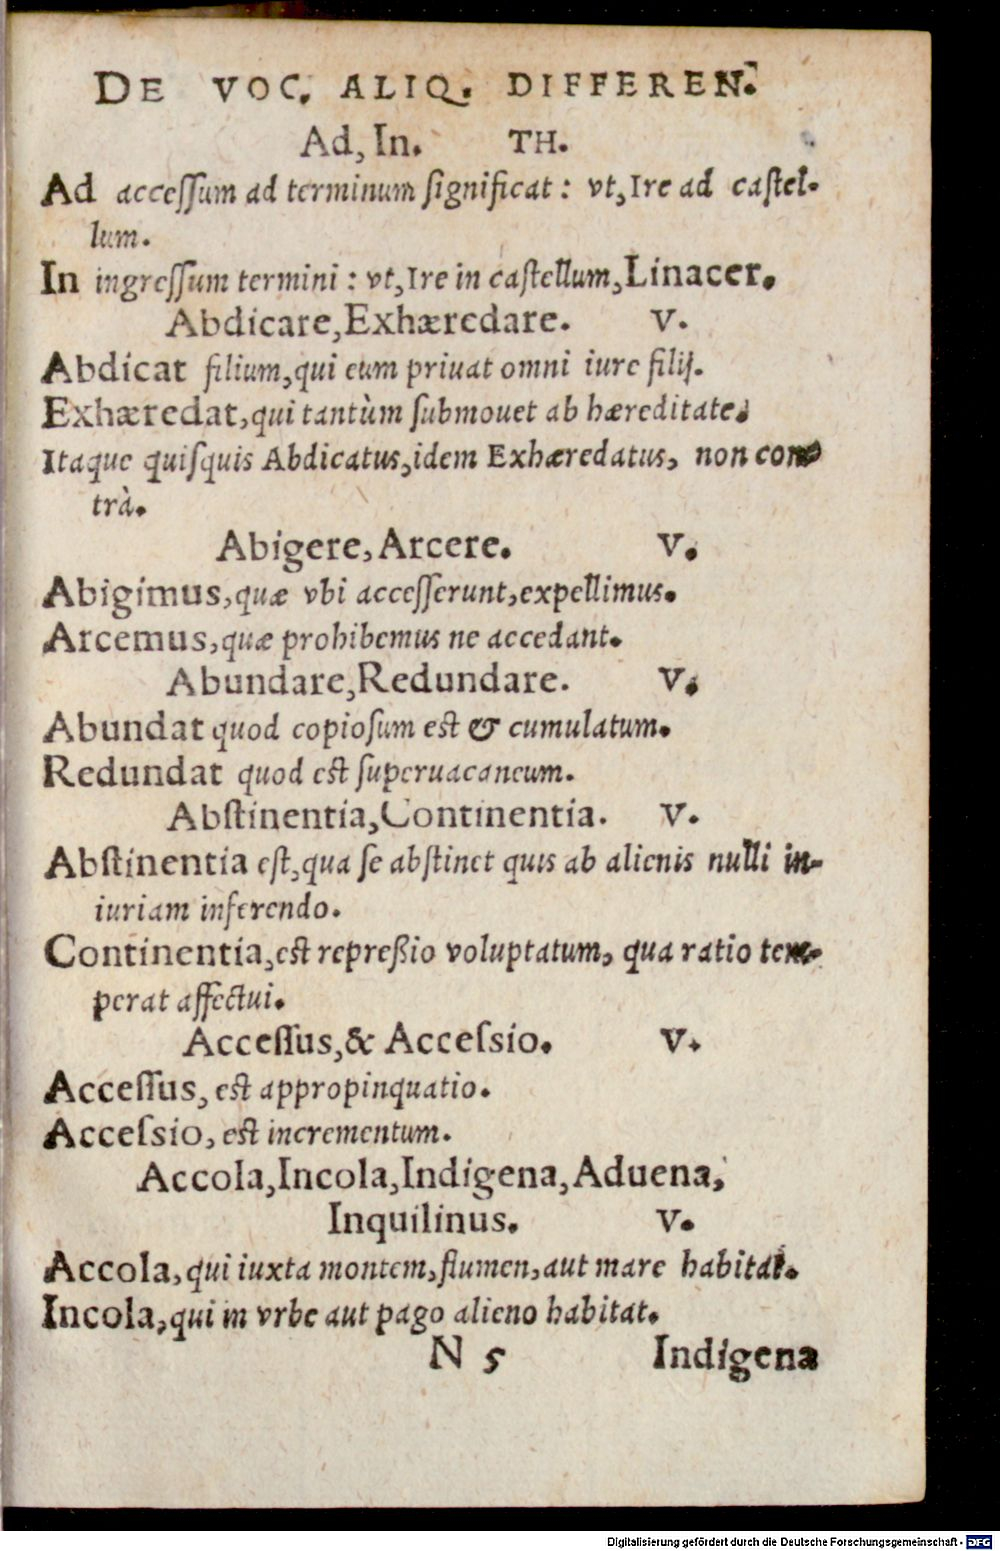 DE VOC. ALIQ. DIFFEREN.
Ad, In. TH.
Ad acceſſum ad terminum ſignificat: vt, Ire ad caſtel-
lum.
In ingreſſum termini: vt, Ire in caſtellum, Linacer.
Abdicare, Exhæredare. V.
Abdicat filium, qui eum priuat omni iure filij.
Exhæredat, qui tantùm ſubmouet ab hæreditate.
Itaque quiſquis Abdicatus, idem Exhæredatus, non con-
trà.
Abigere, Arcere. V.
Abigimus, quæ vbi acceſſerunt, expellimus.
Arcemus, quæ prohibemus ne accedant.
Abundare, Redundare. V.
Abundat quod copioſum est & cumulatum.
Redundat quod est ſuperuacaneum.
Abſtinentia, Continentia. V.
Abſtinentia eſt, qua ſe abſtinet quis ab alienis nulli in-
iuriam inferendo.
Continentia, est repreßio voluptatum, qua ratio tem-
perat affectui.
Acceſſus, & Acceſsio. V.
Acceſſus, est appropinquatio.
Acceſsio, est incrementum.
Accola, Incola, Indigena, Aduena,
Inquilinus. V.
Accola, qui iuxta montem, flumen, aut mare habitat.
Incola, qui in vrbe aut pago alieno habitat.
N 5 Indigena
Digitalisierung gefördert durch die Deutsche Forschungsgemeinschaft - DFG